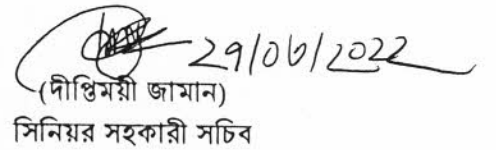 29/06/2022
(দীপ্তিময়ী জামান)
সিনিয়র সহকারী সচিব